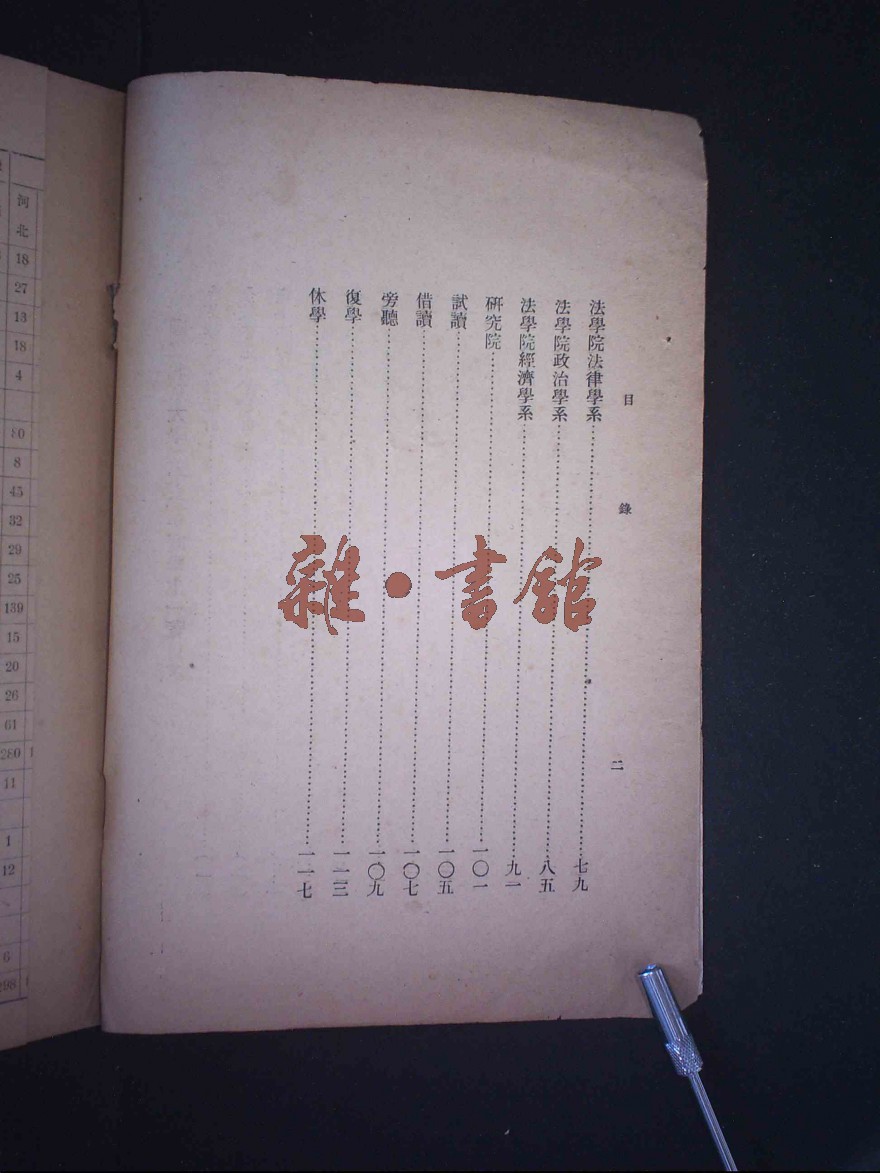 目錄 二
法學院法律學系……七九
法學院政治學系……八五
法學院經濟學系……九一
研究院……一〇一
試讀……一〇五
借讀……一〇七
旁聽……一〇九
復學……一一三
休學……一一七
雜·書館
河北
18
27
13
18
4
80
8
45
32
29
25
139
15
20
26
61
280
11
1
12
6
298